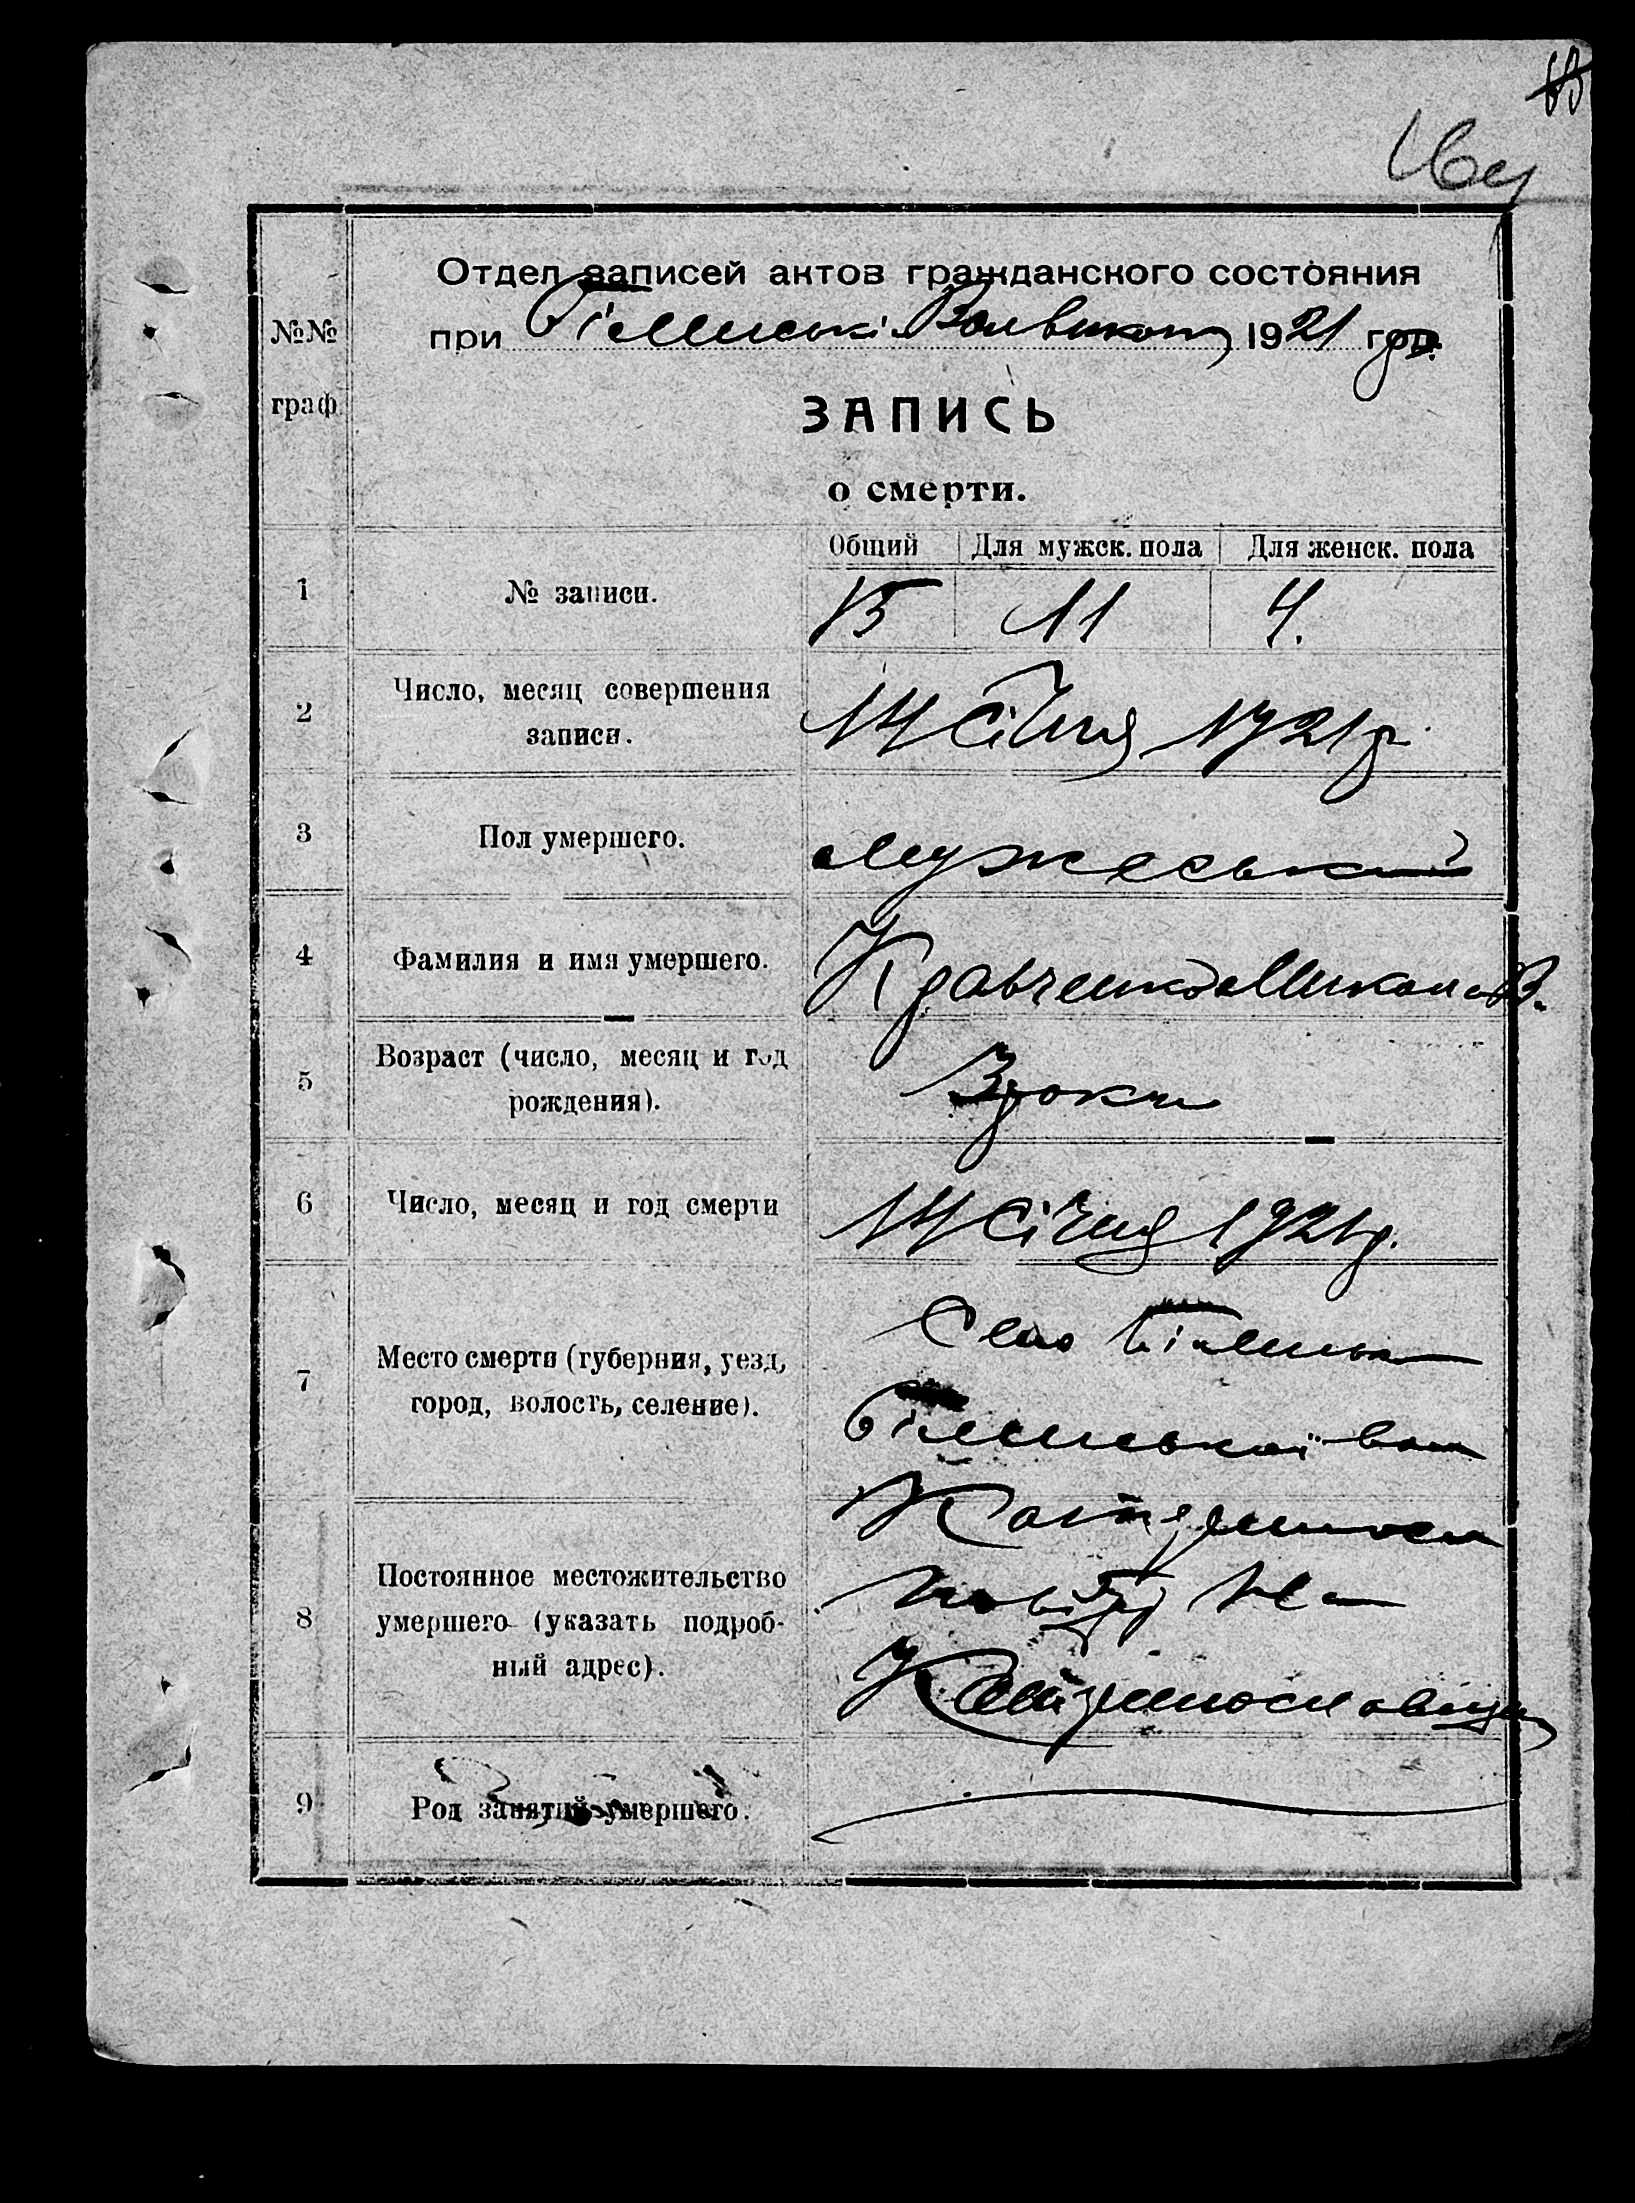 Отдел записей актов гражданского состояния
при 1921 год.
№№
граф
ЗАПИСЬ
о смерти.
Общий Для мужск. пола Для женск. пола
1 № записи. 15 11 4.
2 Число, месяц совершения
записи. 14 Січня 1921 р.
3 Пол умершего. Мужеський
4 Фамилия и имя умершего. Кравченко Микола В.
5 Возраст (число, месяц и год
рождения). 3 роки
6 Число, месяц и год смерти 14 Січня 1921 р.
7 Место смерти (губерния, уезд,
город, волость, селение). Село
вол
8 Постоянное местожительство
умершего (указать подроб-
ный адрес).
повіту на
Катеринославщи
9 Род занятий умершего.